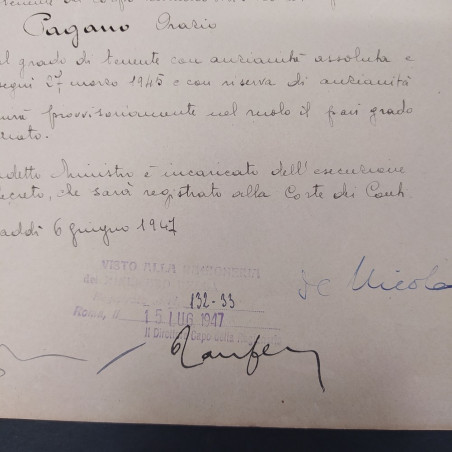 Pagano Orazio
al grado di tenente con anzianità assoluta e
segni 27 marzo 1945 e con riserva di anzianità
provvisoriamente nel ruolo il pari grado
detto Ministro è incaricato dell'esecuzione
decreto, che sarà registrato alla Corte dei Conti
addì 6 giugno 1947
VISTO ALLA RAGIONERIA
132-33
De Nicola
Roma, li 15 LUG 1947
Il Direttore Capo della